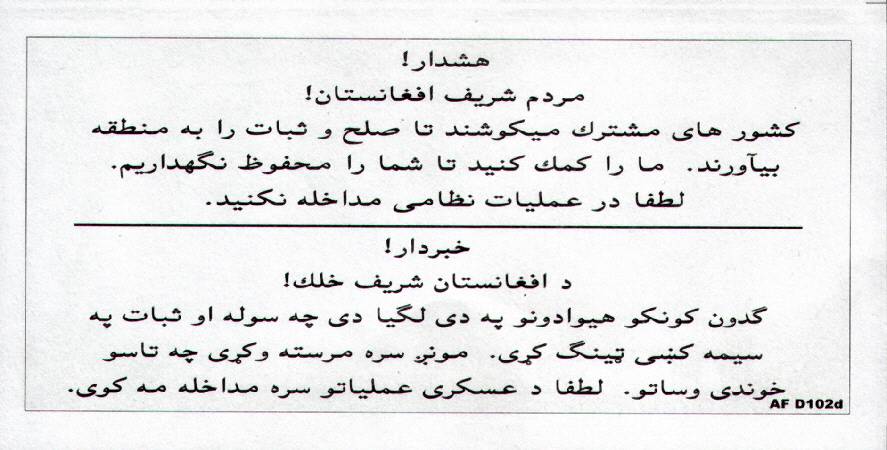 هشدار!
مردم شریف افغانستان!
کشور های مشترك میکوشند تا صلح و ثبات را به منطقه
بیآورند. ما را کمك کنید تا شما را محفوظ نگهداریم.
لطفا در عملیات نظامی مداخله نکنید.
خبردار!
د افغانستان شریف خلك!
گدون کونکو هیوادونو په دی لگیا دی چه سوله او ثبات په
سیمه کښی ټینگ کړی. مونږ سره مرسته وکړی چه تاسو
خوندی وساتو. لطفا د عسکری عملیاتو سره مداخله مه کوی.
AF D102d